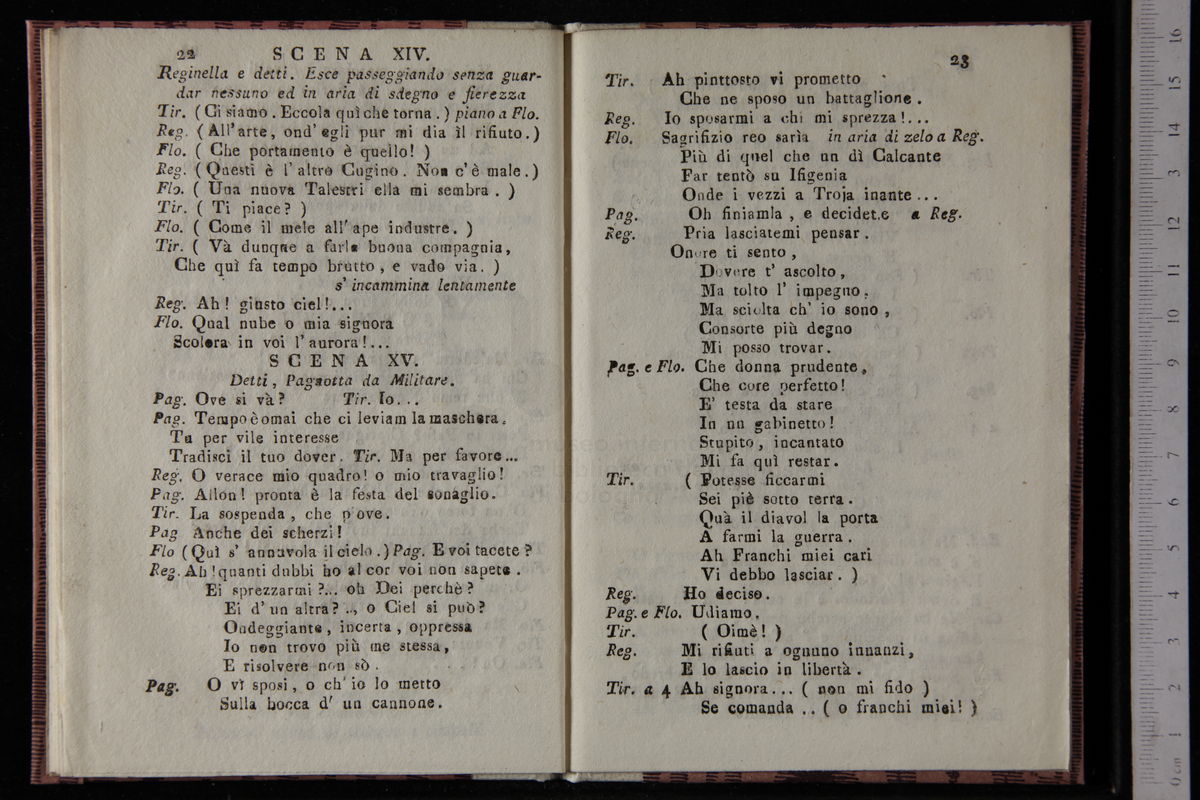 22 SCENA XIV.
Reginella e detti. Esce passeggiando senza guar-
dar nessuno ed in aria di sdegno e fierezza
Tir. ( Ci siamo . Eccola quì che torna . ) piano a Flo.
Reg. ( All' arte, ond' egli pur mi dia il rifiuto. )
Flo. ( Che portamento è quello! )
Reg. ( Questi è l' altro Cugino . Non c' è male . )
Flo. ( Una nuova Talestri ella mi sembra . )
Tir. ( Ti piace? )
Flo. ( Come il mele all' ape industre. )
Tir. ( Và dunque a farle buona compagnia,
Che quì fa tempo brutto , e vado via. )
s' incammina lentamente
Reg. Ah! giusto ciel!...
Flo. Qual nube o mia signora
Scolora in voi l' aurora!...
SCENA XV.
Detti , Pagnotta da Militare.
Pag. Ove si và? Tir. Io...
Pag. Tempo è omai che ci leviam la maschera.
Tu per vile interesse
Tradisci il tuo dover. Tir. Ma per favore...
Reg. O verace mio quadro! o mio travaglio!
Pag. Allon! pronta è la festa del sonaglio.
Tir. La sospenda , che piove.
Pag Anche dei scherzi!
Flo ( Quì s' annuvola il cielo . ) Pag. E voi tacete ?
Reg. Ah ! quanti dubbi ho al cor voi non sapete .
Ei sprezzarmi ?... oh Dei perchè ?
Ei d' un altra? .., o Ciel si può?
Ondeggiante , incerta , oppressa
Io non trovo più me stessa,
E risolvere non sò .
Pag. O vì sposi, o ch' io lo metto
Sulla bocca d' un cannone.
23
Tir. Ah pinttosto vi prometto
Che ne sposo un battaglione .
Reg. Io sposarmi a chi mi sprezza!...
Flo. Sagrifizio reo sarìa in aria di zelo a Reg.
Più di quel che un dì Calcante
Far tentò su Ifigenia
Onde i vezzi a Troja inante ...
Pag. Oh finiamla , e decidete a Reg.
Reg. Pria lasciatemi pensar .
Onore ti sento ,
Dovere t' ascolto ,
Ma tolto l' impegno .
Ma sciolta ch' io sono ,
Consorte più degno
Mi posso trovar.
Pag. e Flo. Che donna prudente,
Che core perfetto!
E' testa da stare
In un gabinetto!
Stupito , incantato
Mi fa quì restar.
Tir. ( Potesse ficcarmi
Sei piè sotto terra .
Quà il diavol la porta
A farmi la guerra .
Ah Franchi miei cari
Vi debbo lasciar. )
Reg. Ho deciso.
Pag. e Flo. Udiamo.
Tir. ( Oimè! )
Reg. Mi rifiuti a ognuno innanzi,
E lo lascio in libertà .
Tir. a 4 Ah signora... ( non mi fido )
Se comanda .. ( o franchi miei! )